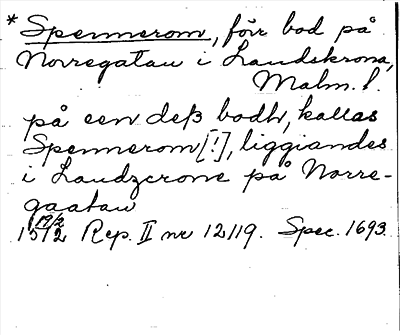 * Spennerom, förr bod på
Norregatan i Landskrona,
Malm. l.
på een deß bodh, kallas
Spennerom [!], liggiandes
i Landzcrone på Norre-
gaatau
19/2
1512 Rep. II nr 12119. Spec. 1693.